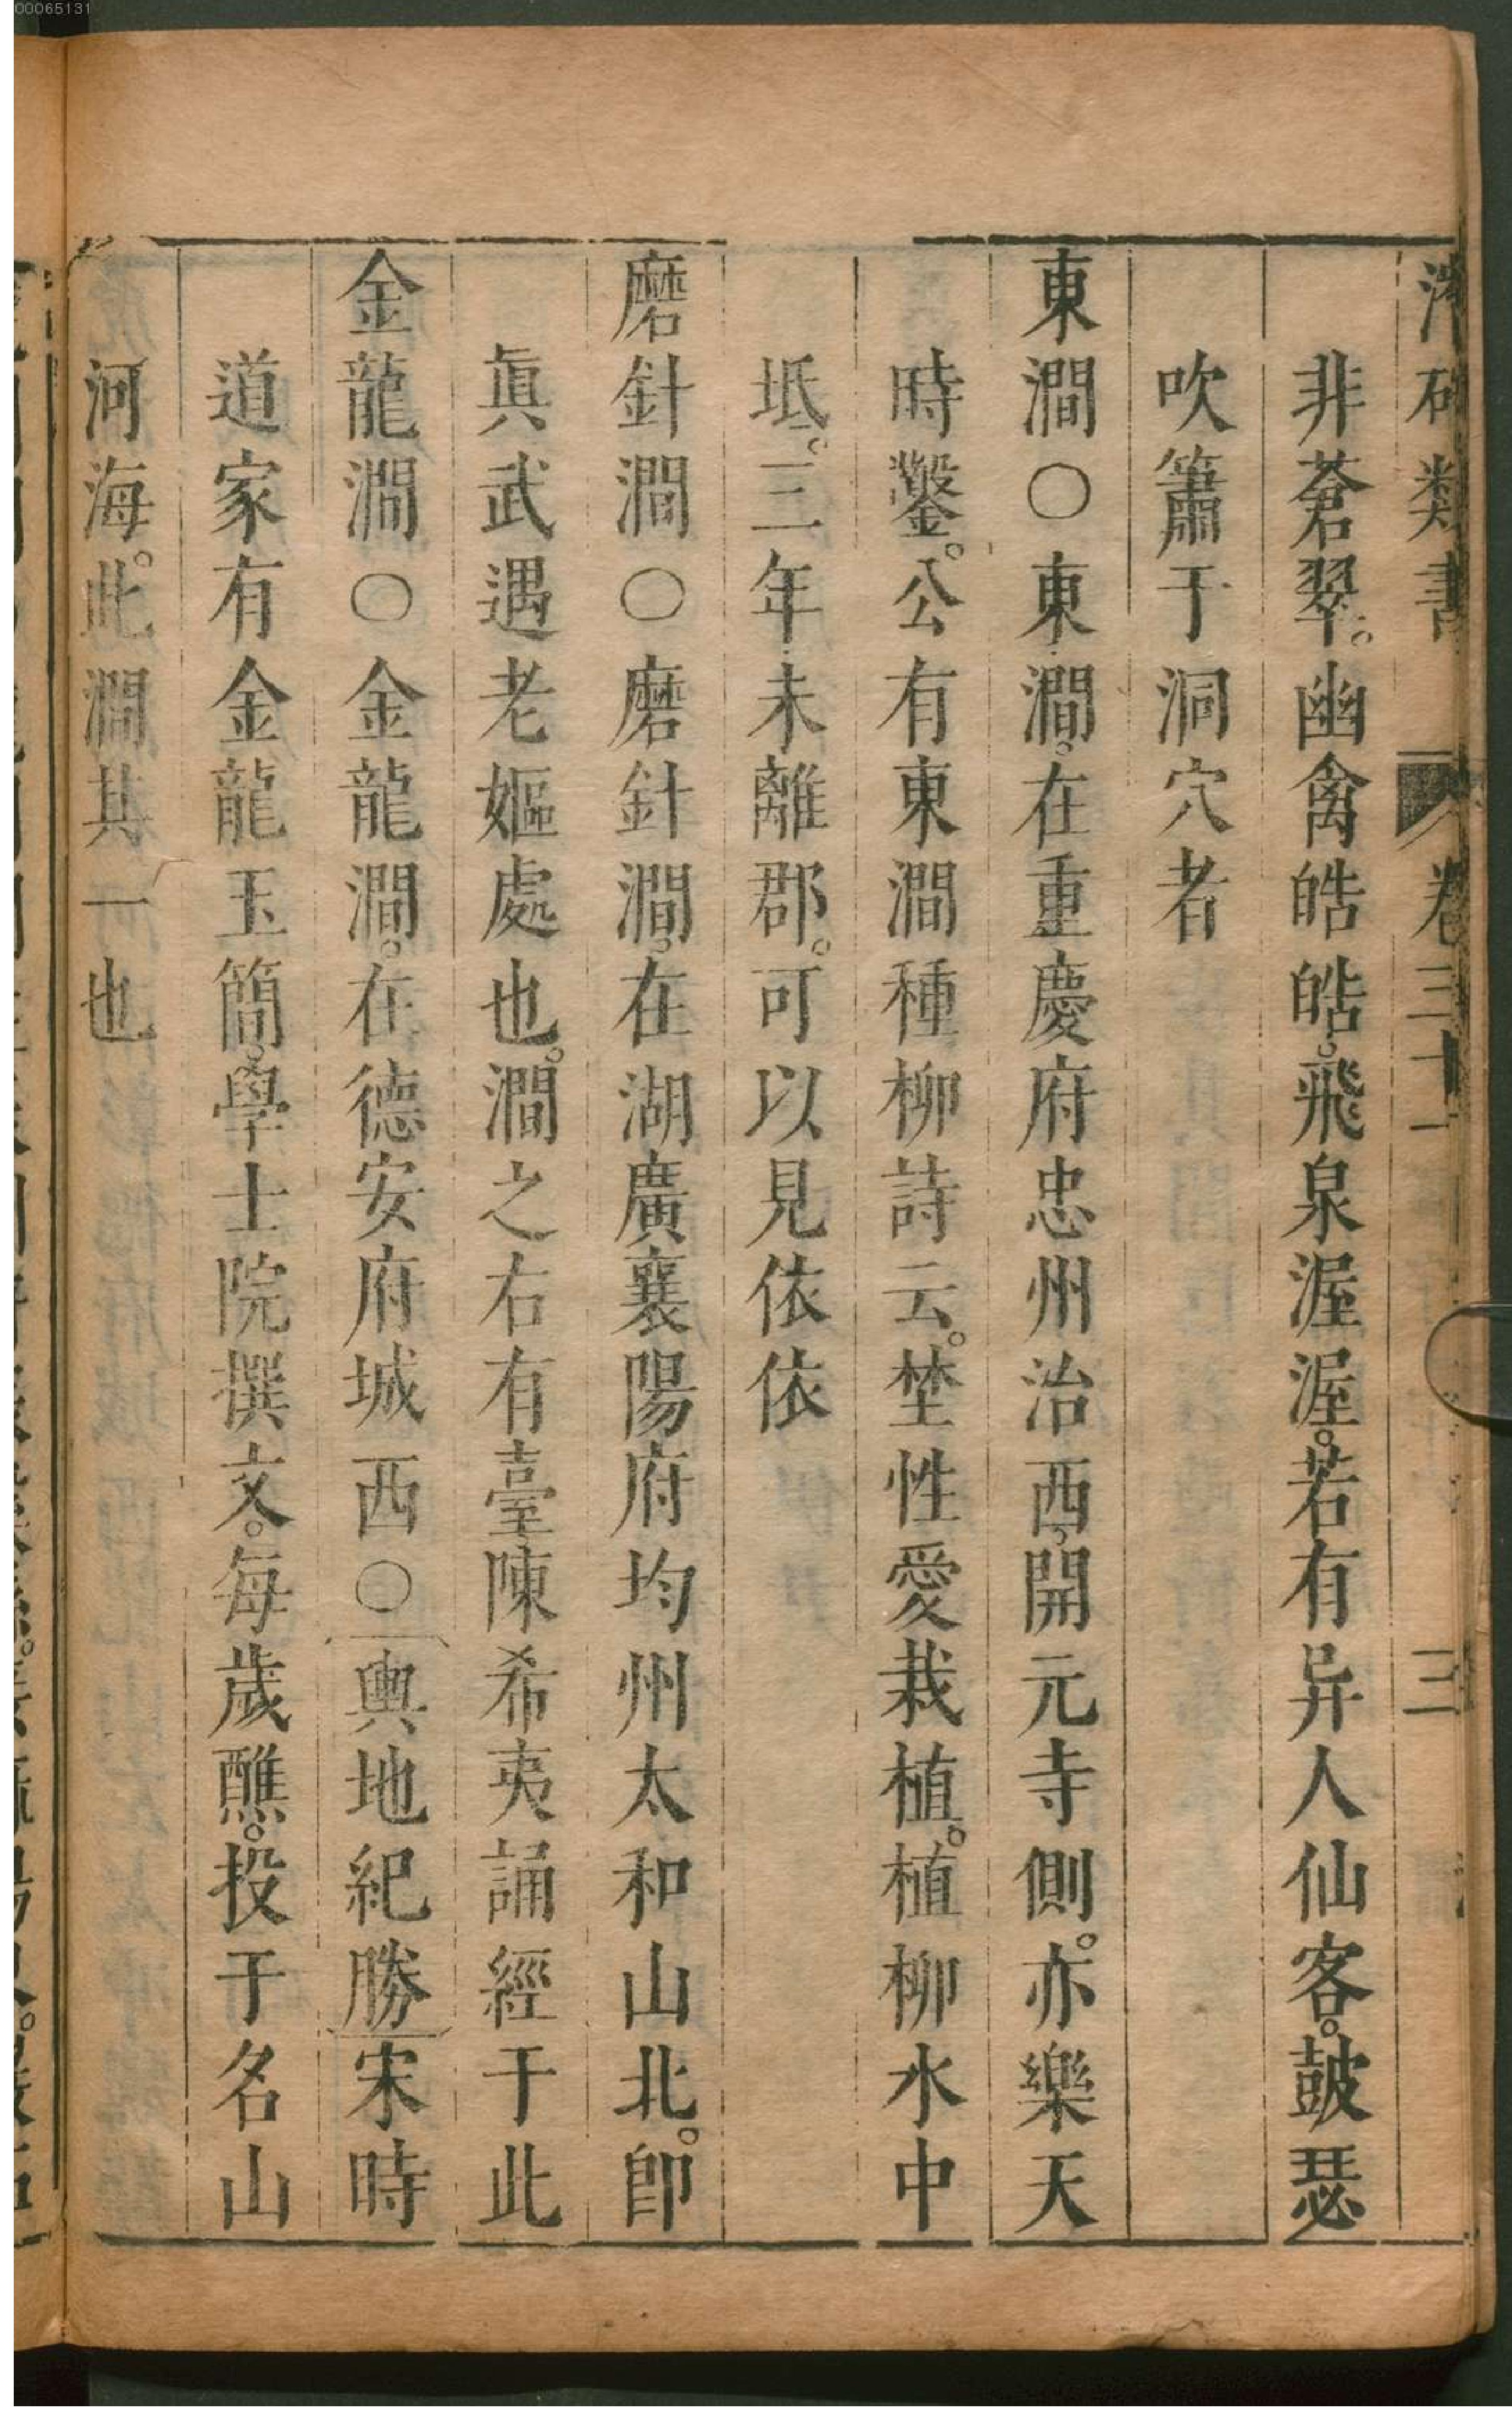 00065131
潛確類書 卷三十一 三
非蒼翠。幽禽皓皓。飛泉渥渥。若有异人仙客。鼓瑟
吹簫于洞穴者
東澗○東澗。在重慶府忠州治西。開元寺側。亦樂天
時鑿。公有東澗種柳詩云。埜性愛栽植。植柳水中
坻。三年未離郡。可以見依依
磨針澗○磨針澗。在湖廣襄陽府均州太和山北。卽
眞武遇老嫗處也。澗之右有臺。陳希夷誦經于此
金龍澗○金龍澗。在德安府城西○輿地紀勝宋時
道家有金龍玉簡。學士院撰文。每歲醮。投于名山
河海。此澗其一也